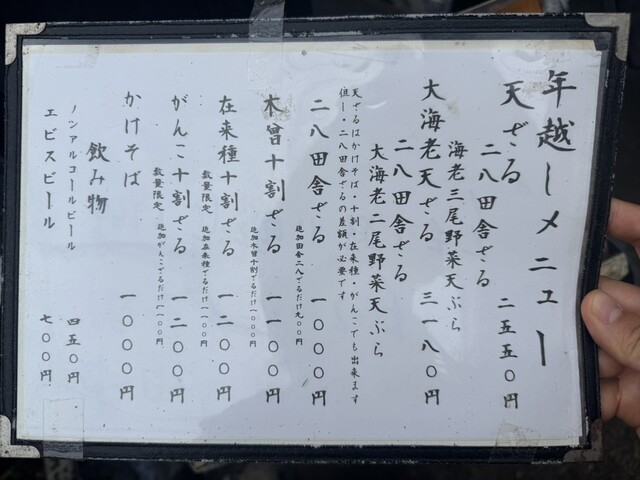 年越しメニュー
天ざる 二五五〇円
二八田舎ざる
海老三尾野菜天ぷら
大海老天ざる 三一八〇円
二八田舎ざる
大海老二尾野菜天ぷら
天ざるはかけそば・十割・在来種・がんこでも出来ます
但し・二八田舎ざるの差額が必要です
二八田舎ざる 一〇〇〇円
追加田舎二八ざるだけ九〇〇円
木曽十割ざる 一一〇〇円
追加木曽十割ざるだけ一〇〇〇円
在来種十割ざる 一二〇〇円
数量限定 追加在来種ざるだけ一一〇〇円
がんこ十割ざる 一二〇〇円
数量限定 追加がんこざるだけ一一〇〇円
かけそば 一〇〇〇円
飲み物
ノンアルコールビール 四五〇円
エビスビール 七〇〇円